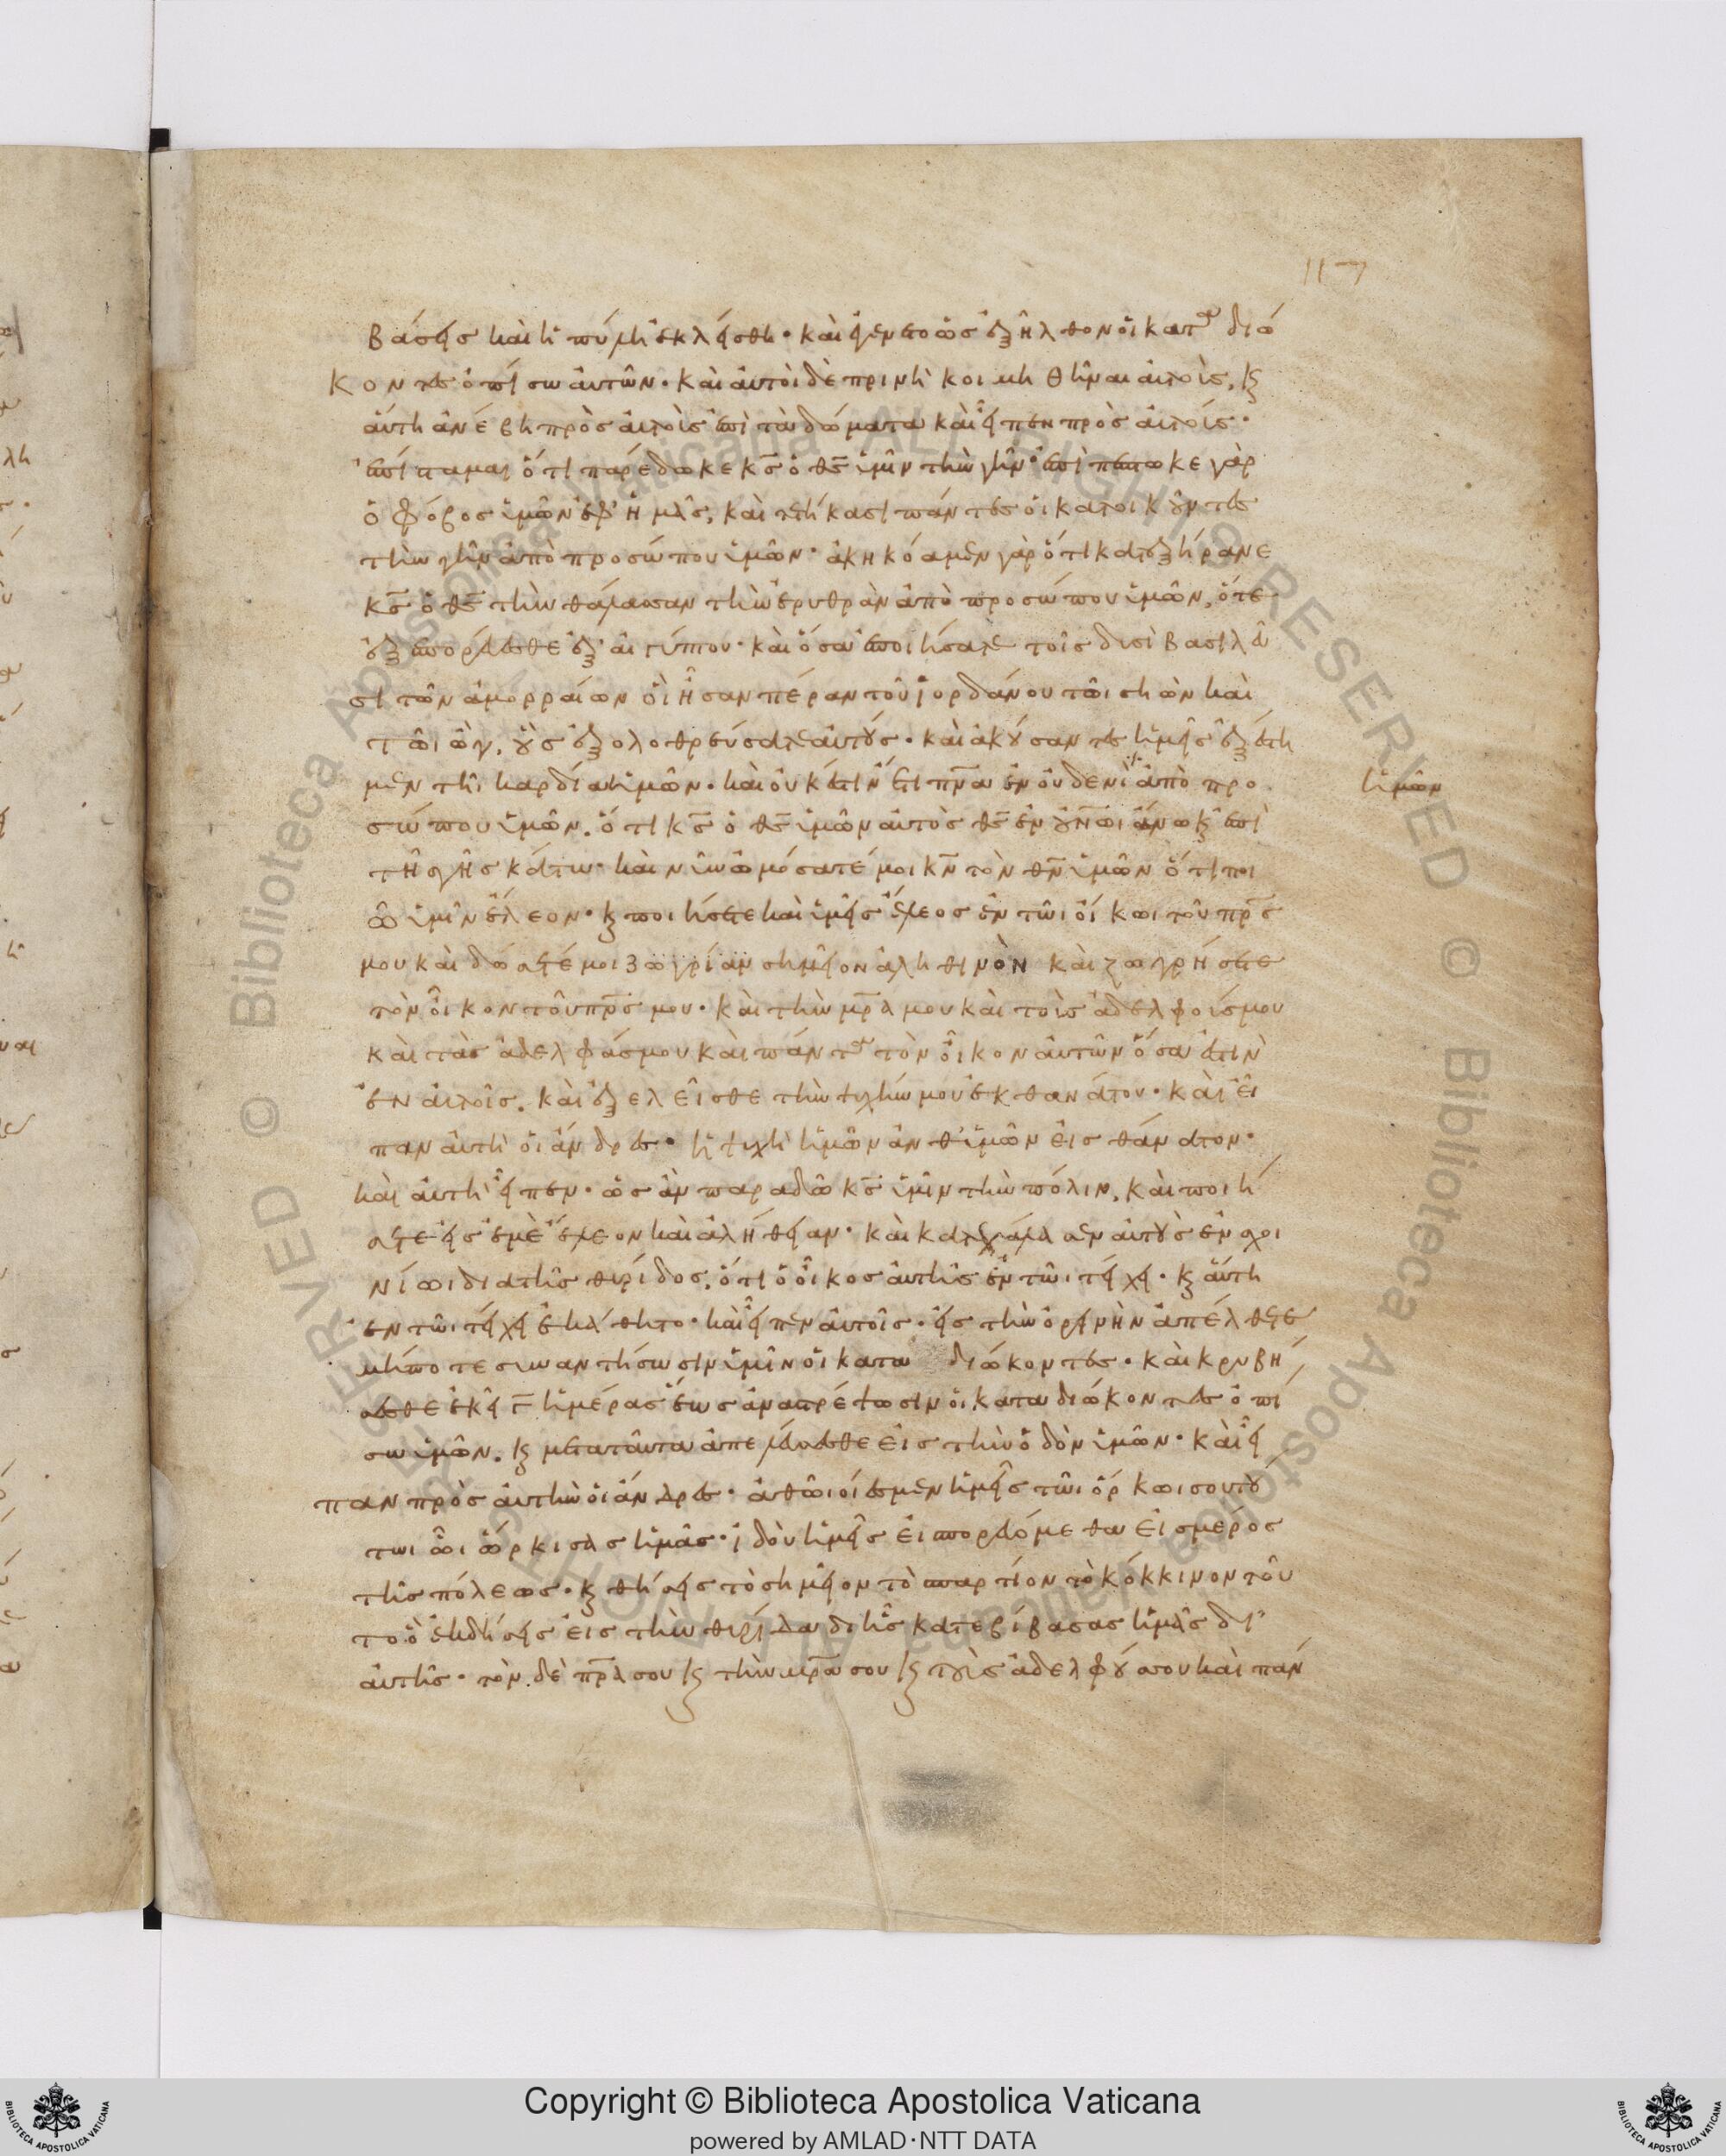 117
βάσεις καὶ ἡ πύλη ἐκλείσθη· καὶ ἐγένετο ὡς ἐξῆλθον οἱ καταδιώ
κοντες ὀπίσω αὐτῶν· καὶ αὐτοὶ δὲ πρινὴ κοιμηθῆναι αὐτοὺς, κ(αὶ)
αὕτη ἀνέβη πρὸς αὐτοὺς ἐπὶ τὰ δώματα καὶ εἶπεν πρὸς αὐτούς·
ἐπίσταμαι ὅτι παρέδωκε κ̅ς̅ ὁ θ̅ς̅ ὑμῖν τὴν γῆν· ἐπιπέπτωκε γὰρ
ὁ φόβος ὑμῶν ἐφ' ἡμᾶς, καὶ τετήκασι πάντες οἱ κατοικοῦντες
τὴν γῆν ἀπὸ προσώπου ὑμῶν· ἀκηκόαμεν γὰρ ὅτι κατεξήρανε
κ̅ς̅ ὁ θ̅ς̅ τὴν θάλασσαν τὴν ἐρυθρὰν ἀπὸ προσώπου ὑμῶν, ὅτε
ἐξεπορεύεσθε ἐξ αἰγύπτου· καὶ ὅσα ἐποιήσατε τοῖς δυσὶ βασιλεῦ
σι τῶν ἀμορραίων οἳ ἦσαν πέραν τοῦ ἰορδάνου τῶι σηὼν καὶ
τῶι ὤγ, οὓς ἐξολοθρεύσατε αὐτούς· καὶ ἀκούσαντες ἡμεῖς ἐξέστη
μεν τῆι καρδίαι ἡμῶν· καὶ οὐκ ἔστιν ἔτι πν̅α̅ ἐν οὐδενὶ ἀπὸ προ
ἡμῶν
σώπου ὑμῶν. ὅτι κ̅ς̅ ὁ θ̅ς̅ ὑμῶν αὐτὸς θ̅ς̅ ἐν οὐν̅ω̅ι ἄνω κ(αὶ) ἐπὶ
τῆς γῆς κάτω· καὶ νῦν ὀμόσατέ μοι κ̅ν̅ τὸν θ̅ν̅ ὑμῶν ὅτι ποι
ῶ ὑμῖν ἔλεον· κ(αὶ) ποιήσετε καὶ ὑμεῖς ἔλεος ἐν τῶι οἴκωι τοῦ πρ̅ς̅
μου καὶ δώσετέ μοι ζωγρίαν σημεῖον ἀληθινὸν καὶ ζωγρήσετε
τὸν οἶκον τοῦ πρ̅ς̅ μου· καὶ τὴν μρ̅α̅ μου καὶ τοὺς ἀδελφούς μου
καὶ τὰς ἀδελφάς μου καὶ πάντα τὸν οἶκον αὐτῶν ὅσα ἐστὶν
ἐν αὐτοῖς. καὶ ἐξελεῖσθε τὴν ψυχήν μου ἐκ θανάτου· καὶ εἶ
παν αὐτῆ οἱ ἄνδρες· ἡ ψυχὴ ἡμῶν ἀνθ' ὑμῶν εἰς θάνατον·
καὶ αὐτὴ εἶπεν· ὡς ἂν παραδῶ κ̅ς̅ ὑμῖν τὴν πόλιν, καὶ ποιή
σετε εἰς ἐμὲ ἔλεον καὶ ἀλήθειαν· καὶ κατεχάλασεν αὐτοὺς ἐν σχοι
νίωι διὰ τῆς θυρίδος, ὅτι ὁ οἶκος αὐτῆς ἐν τῶι τείχει· κ(αὶ) αὕτη
ἐν τῶι τείχει ἐκάθητο· καὶ εἶπεν αὐτοῖς· εἰς τὴν ὀρεινὴν ἀπέλθετε
μήποτε συναντήσωσιν ὑμῖν οἱ καταδιώκοντες· καὶ κρυβή
σεσθε ἐκεῖ γ̅ ἡμέρας ἕως ἀναστρέψωσιν οἱ καταδιώκοντες ὀπί
σω ὑμῶν. κ(αὶ) μετὰ ταῦτα ἀπελεύσεσθε εἰς τὴν ὁδὸν ὑμῶν· καὶ εἶ
παν πρὸς αὐτὴν οἱ ἄνδρες· ἀθῶιοί ἐσμεν ἡμεῖς τῶι ὅρκωι σου τού
τωι ὧι ὥρκισας ἡμᾶς· ἰδοὺ ἡμεῖς εἰσπορευόμεθα εἰς μέρος
τῆς πόλεως· κ(αὶ) θήσεις τὸ σημεῖον τὸ σπαρτίον τὸ κόκκινον τοῦ
το ὃ ἐκδήσεις εἰς τὴν θυρίδα δι' ἧς κατεβίβασας ἡμᾶς δι'
αὐτῆς· τὸν δὲ πρ̅α̅ σου κ(αὶ) τὴν μρ̅α̅ σου κ(αὶ) τοὺς ἀδελφούς σου καὶ πάν
Copyright © Biblioteca Apostolica Vaticana
powered by AMLAD·NTT DATA